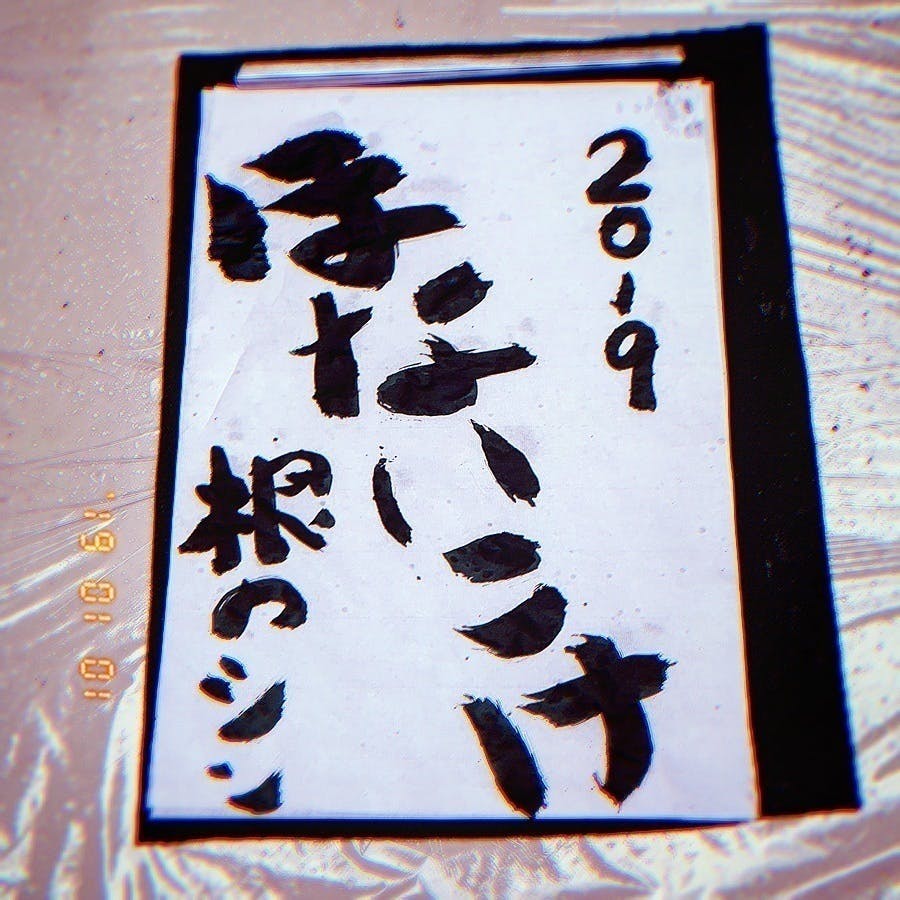 2019
ほないこけ
根のシン
'19 10 10